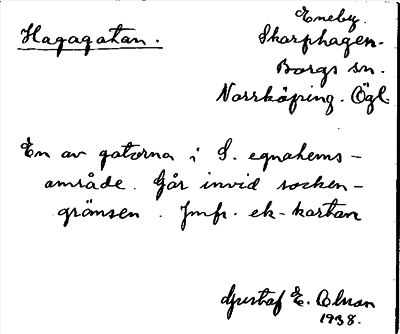 Hagagatan.
Eneby.
Skarphagen.
Borgs sn.
Norrköping. Ögl.
En av gatorna i S. egnahems-
område. Går invid socken-
gränsen. Jmfr. ek-kartan
Gustaf E. Olsson
1938.